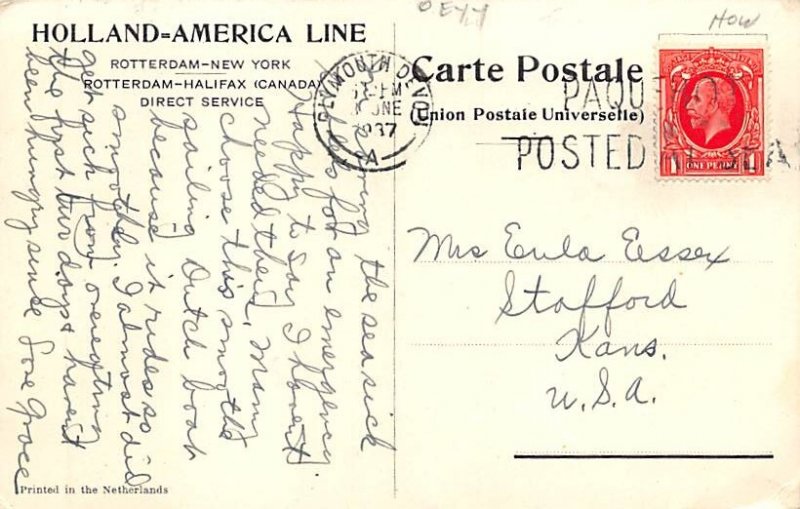 HOLLAND=AMERICA LINE
ROTTERDAM—NEW YORK
ROTTERDAM—HALIFAX (CANADA)
DIRECT SERVICE
PLYMOUTH DEVON
JUNE
1937
A
HOW
Carte Postale
(Union Postale Universelle)
PAQUEBOT
POSTED AT SEA
1 ONE PENNY 1
the seasick
for an emergency.
Happy to say I haven't
needed them. Many
choose this smooth
sailing Dutch boat
because it rides so
smoothly. I almost did
get sick from overeating
the first two days & haven't
been hungry since Love Grace
Mrs Eula Essex
Stafford
Kans.
U.S.A.
Printed in the Netherlands